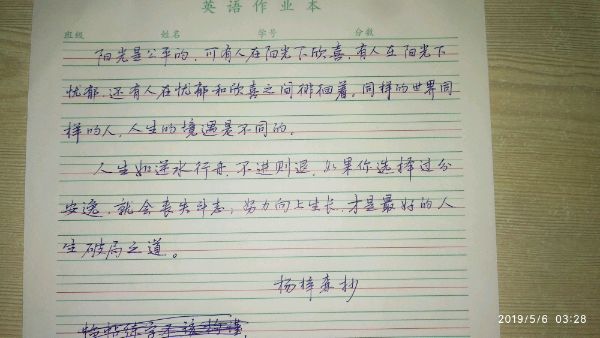 英语作业本
班级 姓名 学号 分数
阳光是公平的,可有人在阳光下欣喜,有人在阳光下
忧郁.还有人在忧郁和欣喜之间徘徊着,同样的世界同
样的人,人生的境遇是不同的.
人生如逆水行舟.不进则退.如果你选择过分
安逸,就会丧失斗志,努力向上生长,才是最好的人
生破局之道。
杨梓森抄
2019/5/6 03:28